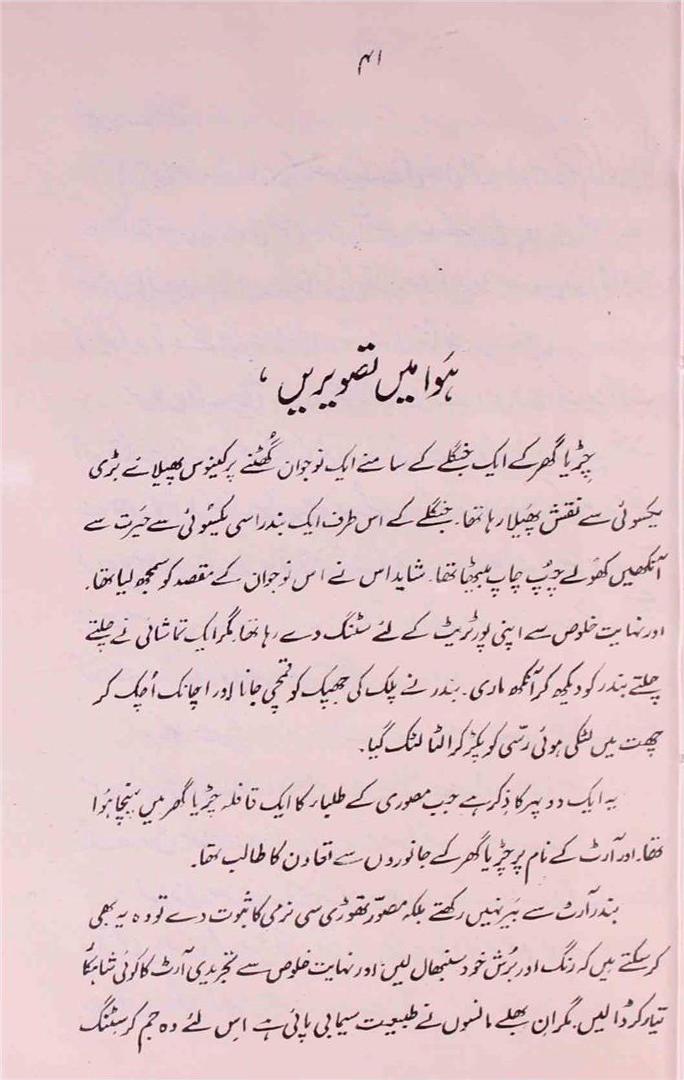 ۴۱
ہَوا میں تصویریں ،
چڑیا گھر کے ایک جنگلے کے سامنے ایک نوجوان گھُٹنے پر کینوس پھیلائے بڑی
یکسوئی سے نقش پھیلا رہا تھا۔ جنگلے کے اس طرف ایک بندر اسی یکسُوئی سے حیرَت سے
آنکھیں کھولے چُپ چاپ بیٹھا تھا۔ شاید اس نے اس نوجوان کے مقصد کو سمجھ لیا تھا۔
اور نہایت خلوص سے اپنی پورٹریٹ کے لئے سٹنگ دے رہا تھا۔ مگر ایک تماشائی نے چلتے
چلتے بندر کو دیکھ کر آنکھ ماری۔ بندر نے پلک کی جھپک کو قمچی جانا اور اچانک اُچک کر
چھت میں لٹکی ہوئی رسّی کو پکڑ کر الٹا لٹک گیا۔
یہ ایک دوپہر کا ذِکر ہے جب مصوری کے طلباء کا ایک قافلہ چڑیا گھر میں پہنچا ہُوا
تھا۔ اور آرٹ کے نام پر چڑیا گھر کے جانوروں سے تعاون کا طالب تھا۔
بندر آرٹ سے بَیر نہیں رکھتے بلکہ مصوّر تھوڑی سی نرمی کا ثبوت دے تو وہ یہ بھی
کر سکتے ہیں کہ رنگ اور برُش خود سنبھال لیں اور نہایت خلوص سے تجریدی آرٹ کا کوئی شاہکار
تیار کر ڈالیں۔ مگر اِن بھلے مانسوں نے طبیعت سیمابی پائی ہے اِس لئے وہ جم کر سٹنگ